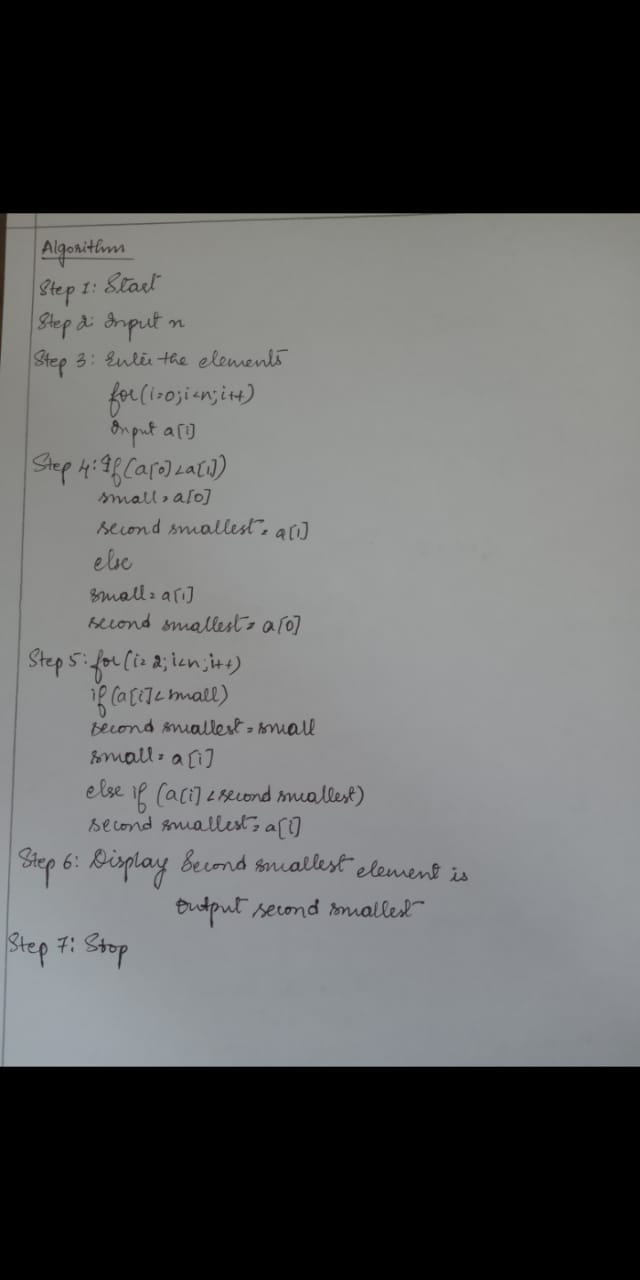 Algorithm
Step 1: Start
Step 2: Input n
Step 3: Enter the elements
for(i=0;i<n;i++)
Input a[i]
Step 4: If(a[0]<a[1])
small=a[0]
second smallest=a[1]
else
small=a[1]
second smallest=a[0]
Step 5: for(i=2;i<n;i++)
if(a[i]<small)
second smallest=small
small=a[i]
else if (a[i]<second smallest)
second smallest=a[i]
Step 6: Display Second smallest element is
Output second smallest
Step 7: Stop